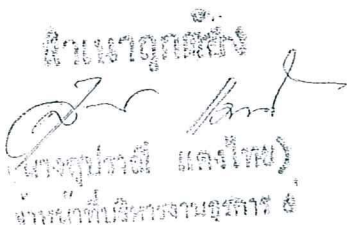 สำเนาถูกต้อง
(นางสุปราณี แดงไทย)
เจ้าหน้าที่บริหารงานธุรการ ๕